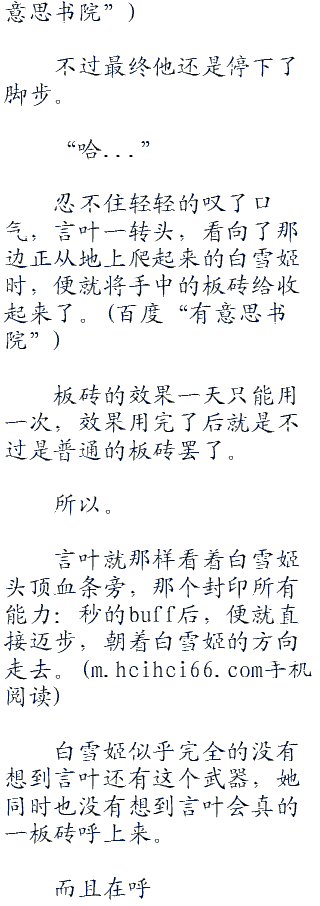 意思书院”)
不过最终他还是停下了
脚步。
“哈...”
忍不住轻轻的叹了口
气，言叶一转头，看向了那
边正从地上爬起来的白雪姬
时，便就将手中的板砖给收
起来了。(百度“有意思书
院”)
板砖的效果一天只能用
一次，效果用完了后就是不
过是普通的板砖罢了。
所以。
言叶就那样看着白雪姬
头顶血条旁，那个封印所有
能力：秒的buff后，便就直
接迈步，朝着白雪姬的方向
走去。(m.hcihci66.com手机
阅读)
白雪姬似乎完全的没有
想到言叶还有这个武器，她
同时也没有想到言叶会真的
一板砖呼上来。
而且在呼